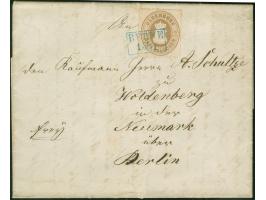 An
den Kaufmann Herrn A. Schultze
zu
Woldenberg
in der
Neumark
über
Berlin
frey